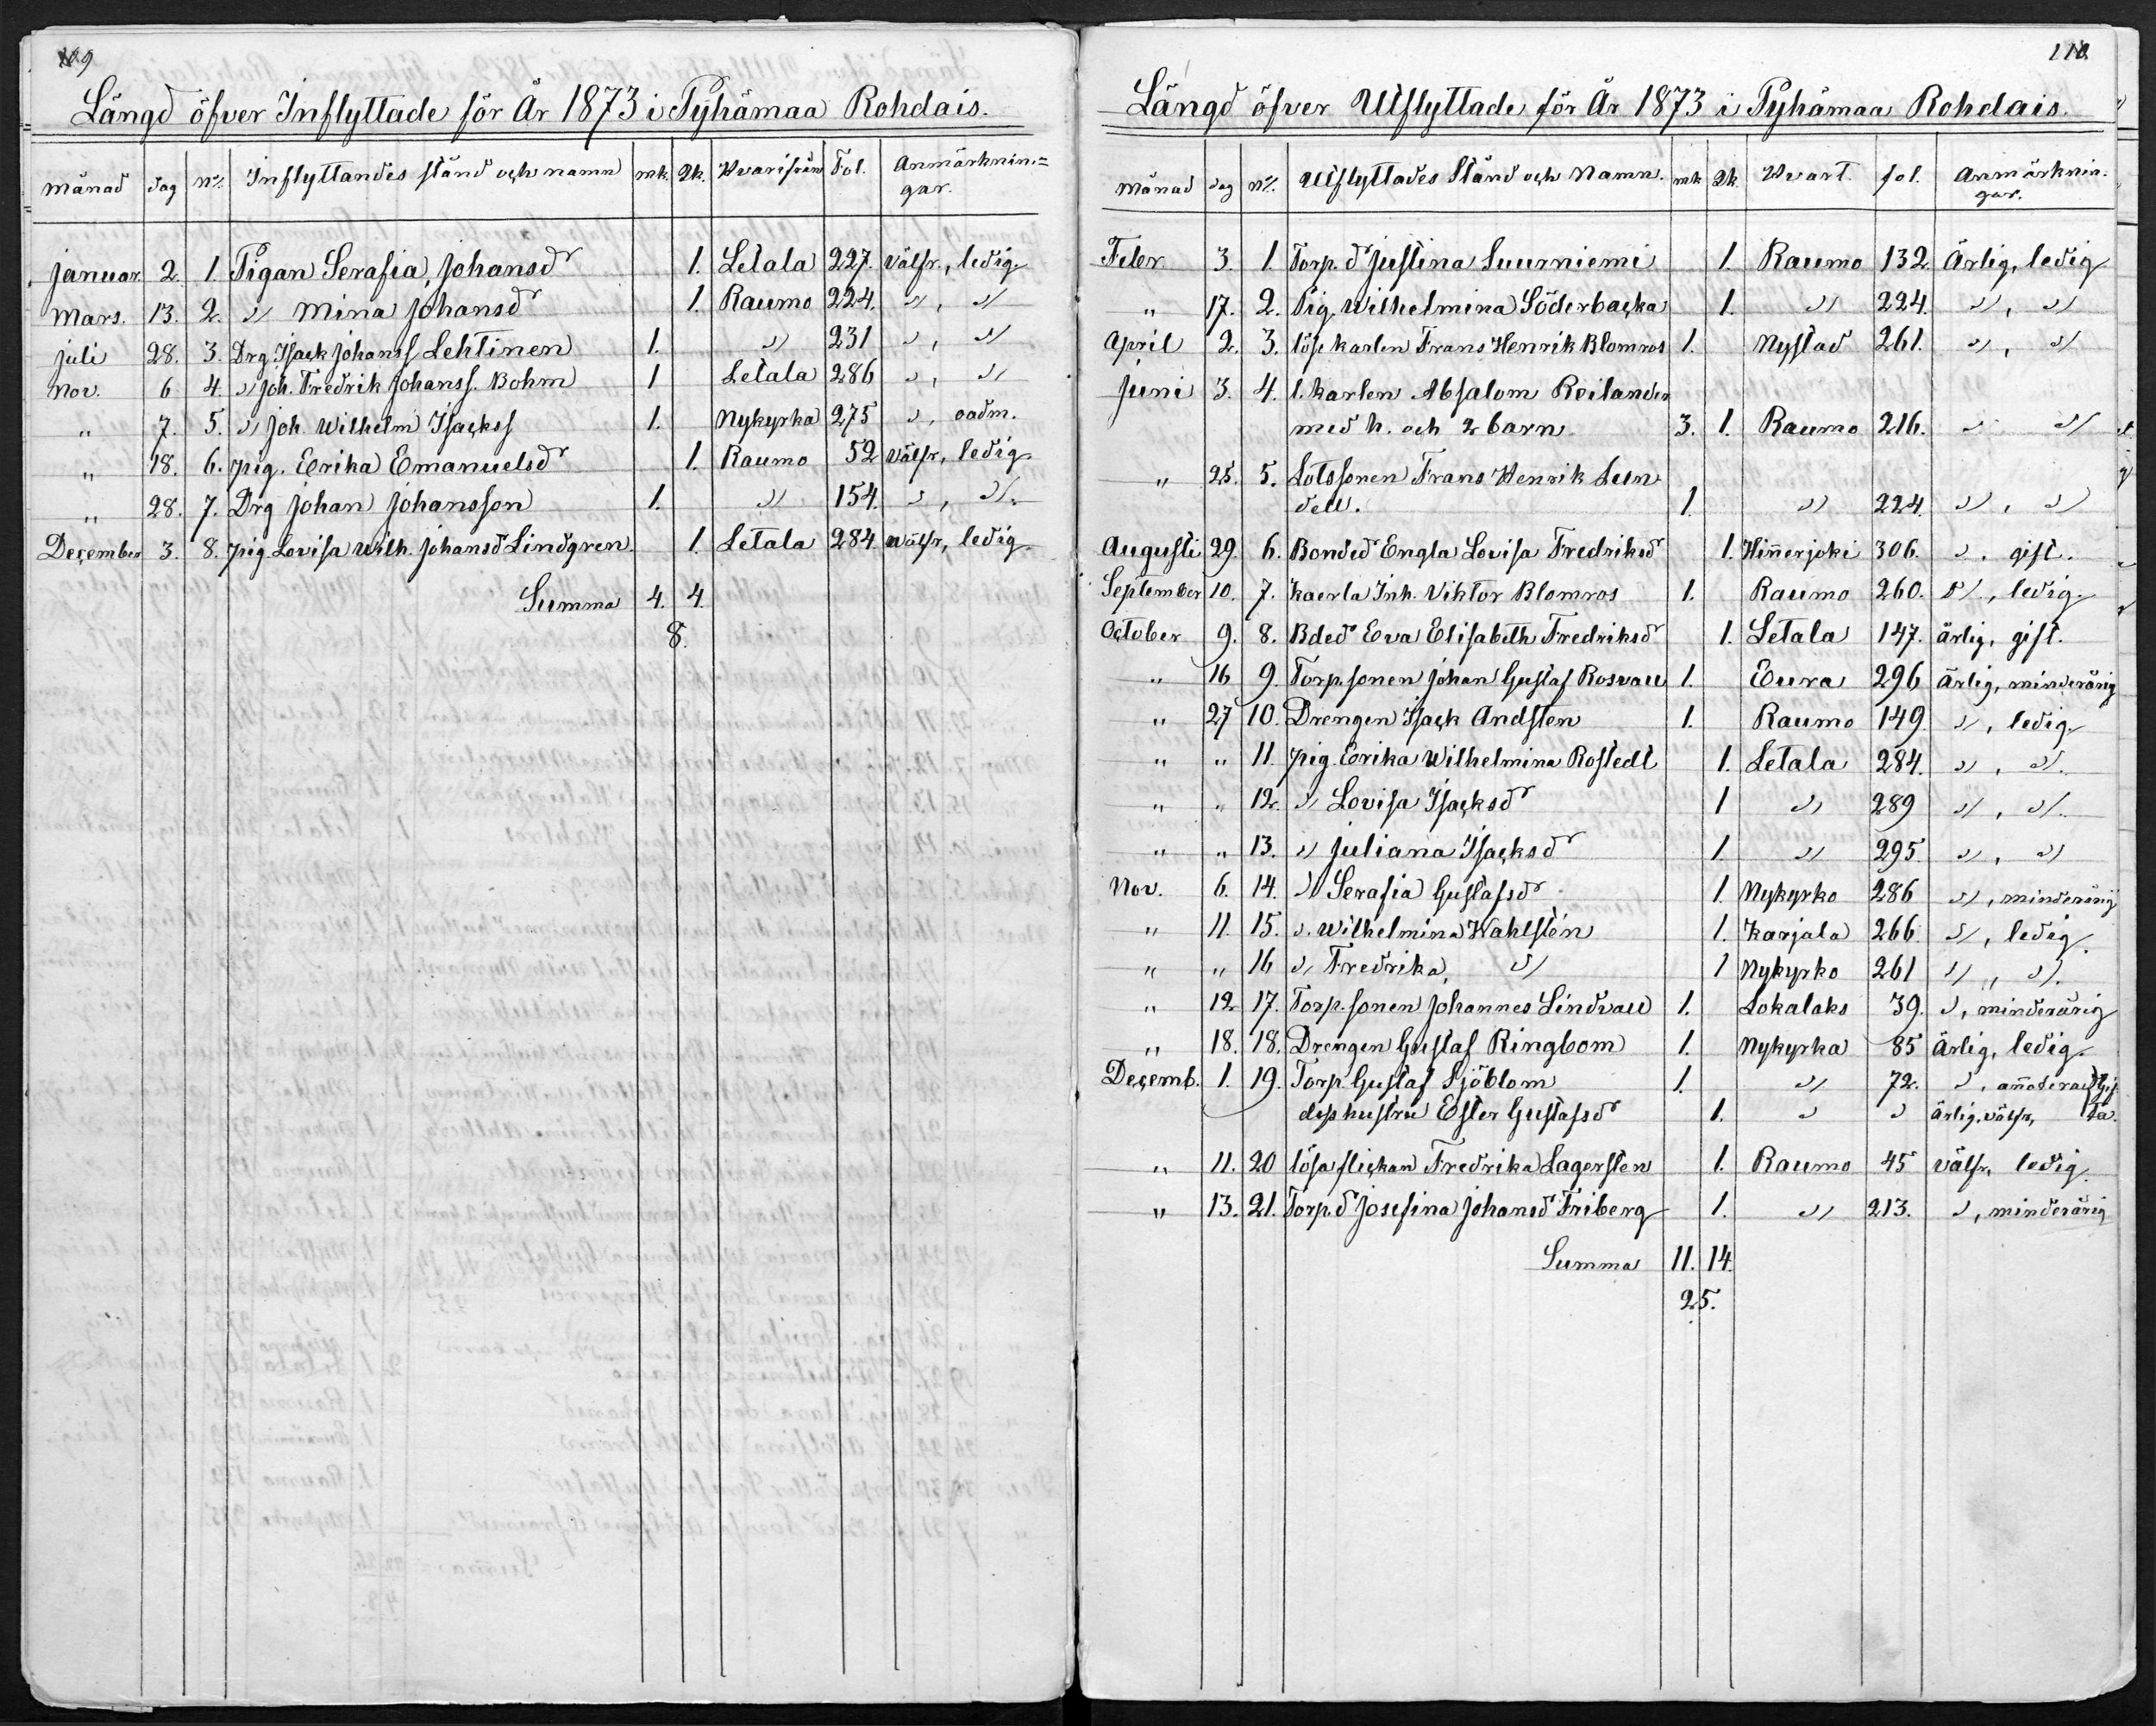 109
Längd öfver Inflyttade för År 1873 i Pyhämaa Rohdais.
månad dag No. Inflyttandes stånd och namn mk. Qk. Hvarifrån Fol. Anmärknin=
gar.
Januar. 2. 1. Pigan Serafia, Johansd 1. Letala 227. välfr., ledig
Mars. 13. 2. " Mina Johansd 1. Raumo 224. ", "
Juli 28. 3. Drg. Isack Johanss Lehtinen 1. " 231 ", "
Nov. 6 4. " Joh. Fredrik Johanss. Bohm 1 Letala 286 ", "
" 7. 5. " Joh. Wilhelm Isackss 1. Nykyrka 275 ", oadm.
" 18. 6. pig. Erika Emanuelsd 1. Raumo 52 välfr, ledig
" 28. 7. Drg Johan Johansson 1. " 154. ", ".
December 3. 8. pig. Lovisa Wilh. Johansd Lindgren. 1. Letala 284 wälfr, ledig.
Summa 4. 4.
8.
110.
Längd öfver Utflyttade för År 1873 i Pyhämaa Rohdais.
Månad dag No. Utflyttades Stånd och Namn. mk Qk. Hvart. fol. Anmärknin-
gar.
Febr. 3. 1. Torp. d Justina Suurniemi 1. Raumo 132. Ärlig, ledig
" 17. 2. Pig. Wilhelmina Söderbacka 1. " 224. ", "
April 2. 3. löse karlen Frans Henrik Blomros 1. Nystad 261. ", "
Juni 3. 4. l. karlen Absalom Reilander
med h. och 2 barn 3. 1. Raumo 216. " "
" 25. 5. Lotssonen Frans Henrik Lun-
dell. 1. " 224. ", "
Augusti 29. 6. Bonded Engla Lovisa Fredriksd 1. Hinerjoki 306. ", gift.
September 10. 7. kaerla Inh. Viktor Blomros 1. Raumo 260. ", ledig.
October 9. 8. Bded Eva Elisabeth Fredriksd 1. Letala 147. ärlig, gift.
" 16 9. Torp. sonen Johan Gustaf Rosvall 1. Eura 296 Ärlig, minderårig
" 27 10. Drengen Isack Andsten 1. Raumo 149 ", ledig.
" " 11. pig. Erika Wilhelmina Rostedt 1. Letala 284. ", ".
" " 12. " Lovisa Isacksd 1 " 289 ", ".
" " 13. " Juliana Isacksd 1. " 295. ", "
Nov. 6. 14. " Serafia Gustafsd 1. Nykyrko 286 ", minderårig
" 11. 15. " Wilhelmina Wahlstén 1. Karjala 266. ", ledig.
" " 16 " Fredrika, " 1 Nykyrko 261 " " ".
" 12 17. Torp. sonen Johannes Lindvall 1. Lokalaks 39. ", minderårig
" 18. 18. Drengen Gustaf Ringbom 1. Nykyrka 85 Ärlig, ledig.
Decemb. 1. 19. Torp. Gustaf Sjöblom 1. " 72. ", Gif-
dess hustru Ester Gustafsd 1. " " ärlig, välfr, ta.
" 11. 20 lösa flickan Fredrika Lagersten 1. Raumo 45 välfr, ledig.
" 13. 21. Torp. d Josefina Johansd Friberg 1. " 213. ", minderårig
Summa 11. 14.
25.